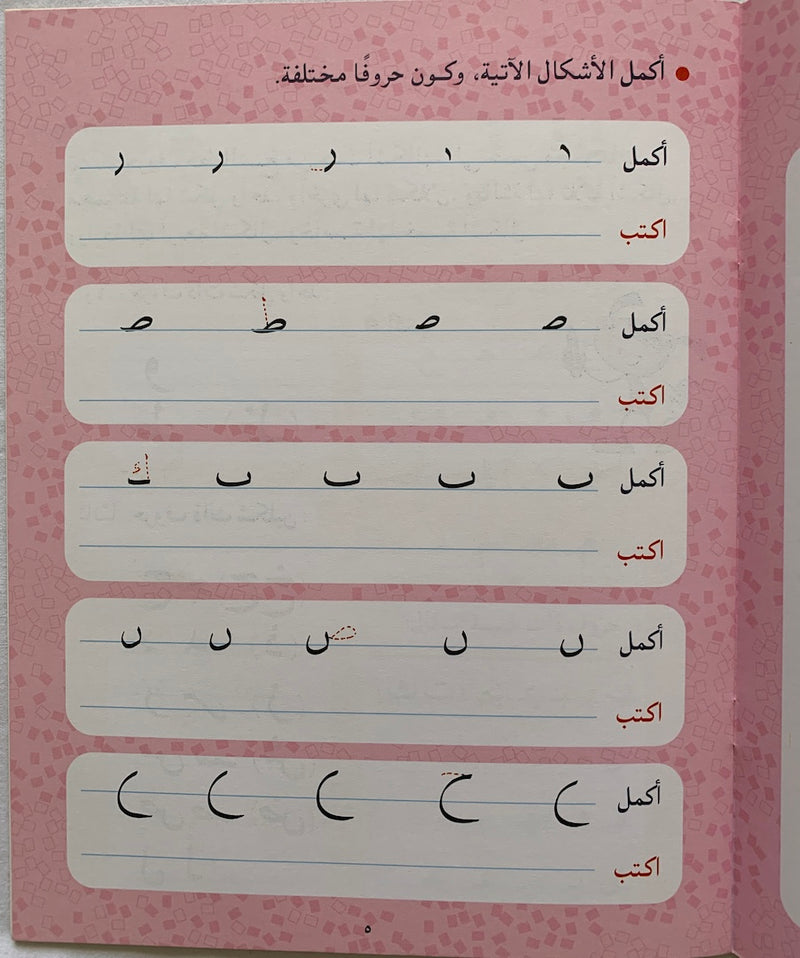 أكمل الأشكال الآتية، وكون حروفًا مختلفة.
أكمل ١ ١ ر ر ر
اكتب
أكمل ط
اكتب
أكمل ٮ ٮ ٮ ٮ ك
اكتب
أكمل ں ں ص ں ں
اكتب
أكمل ح
اكتب
٥